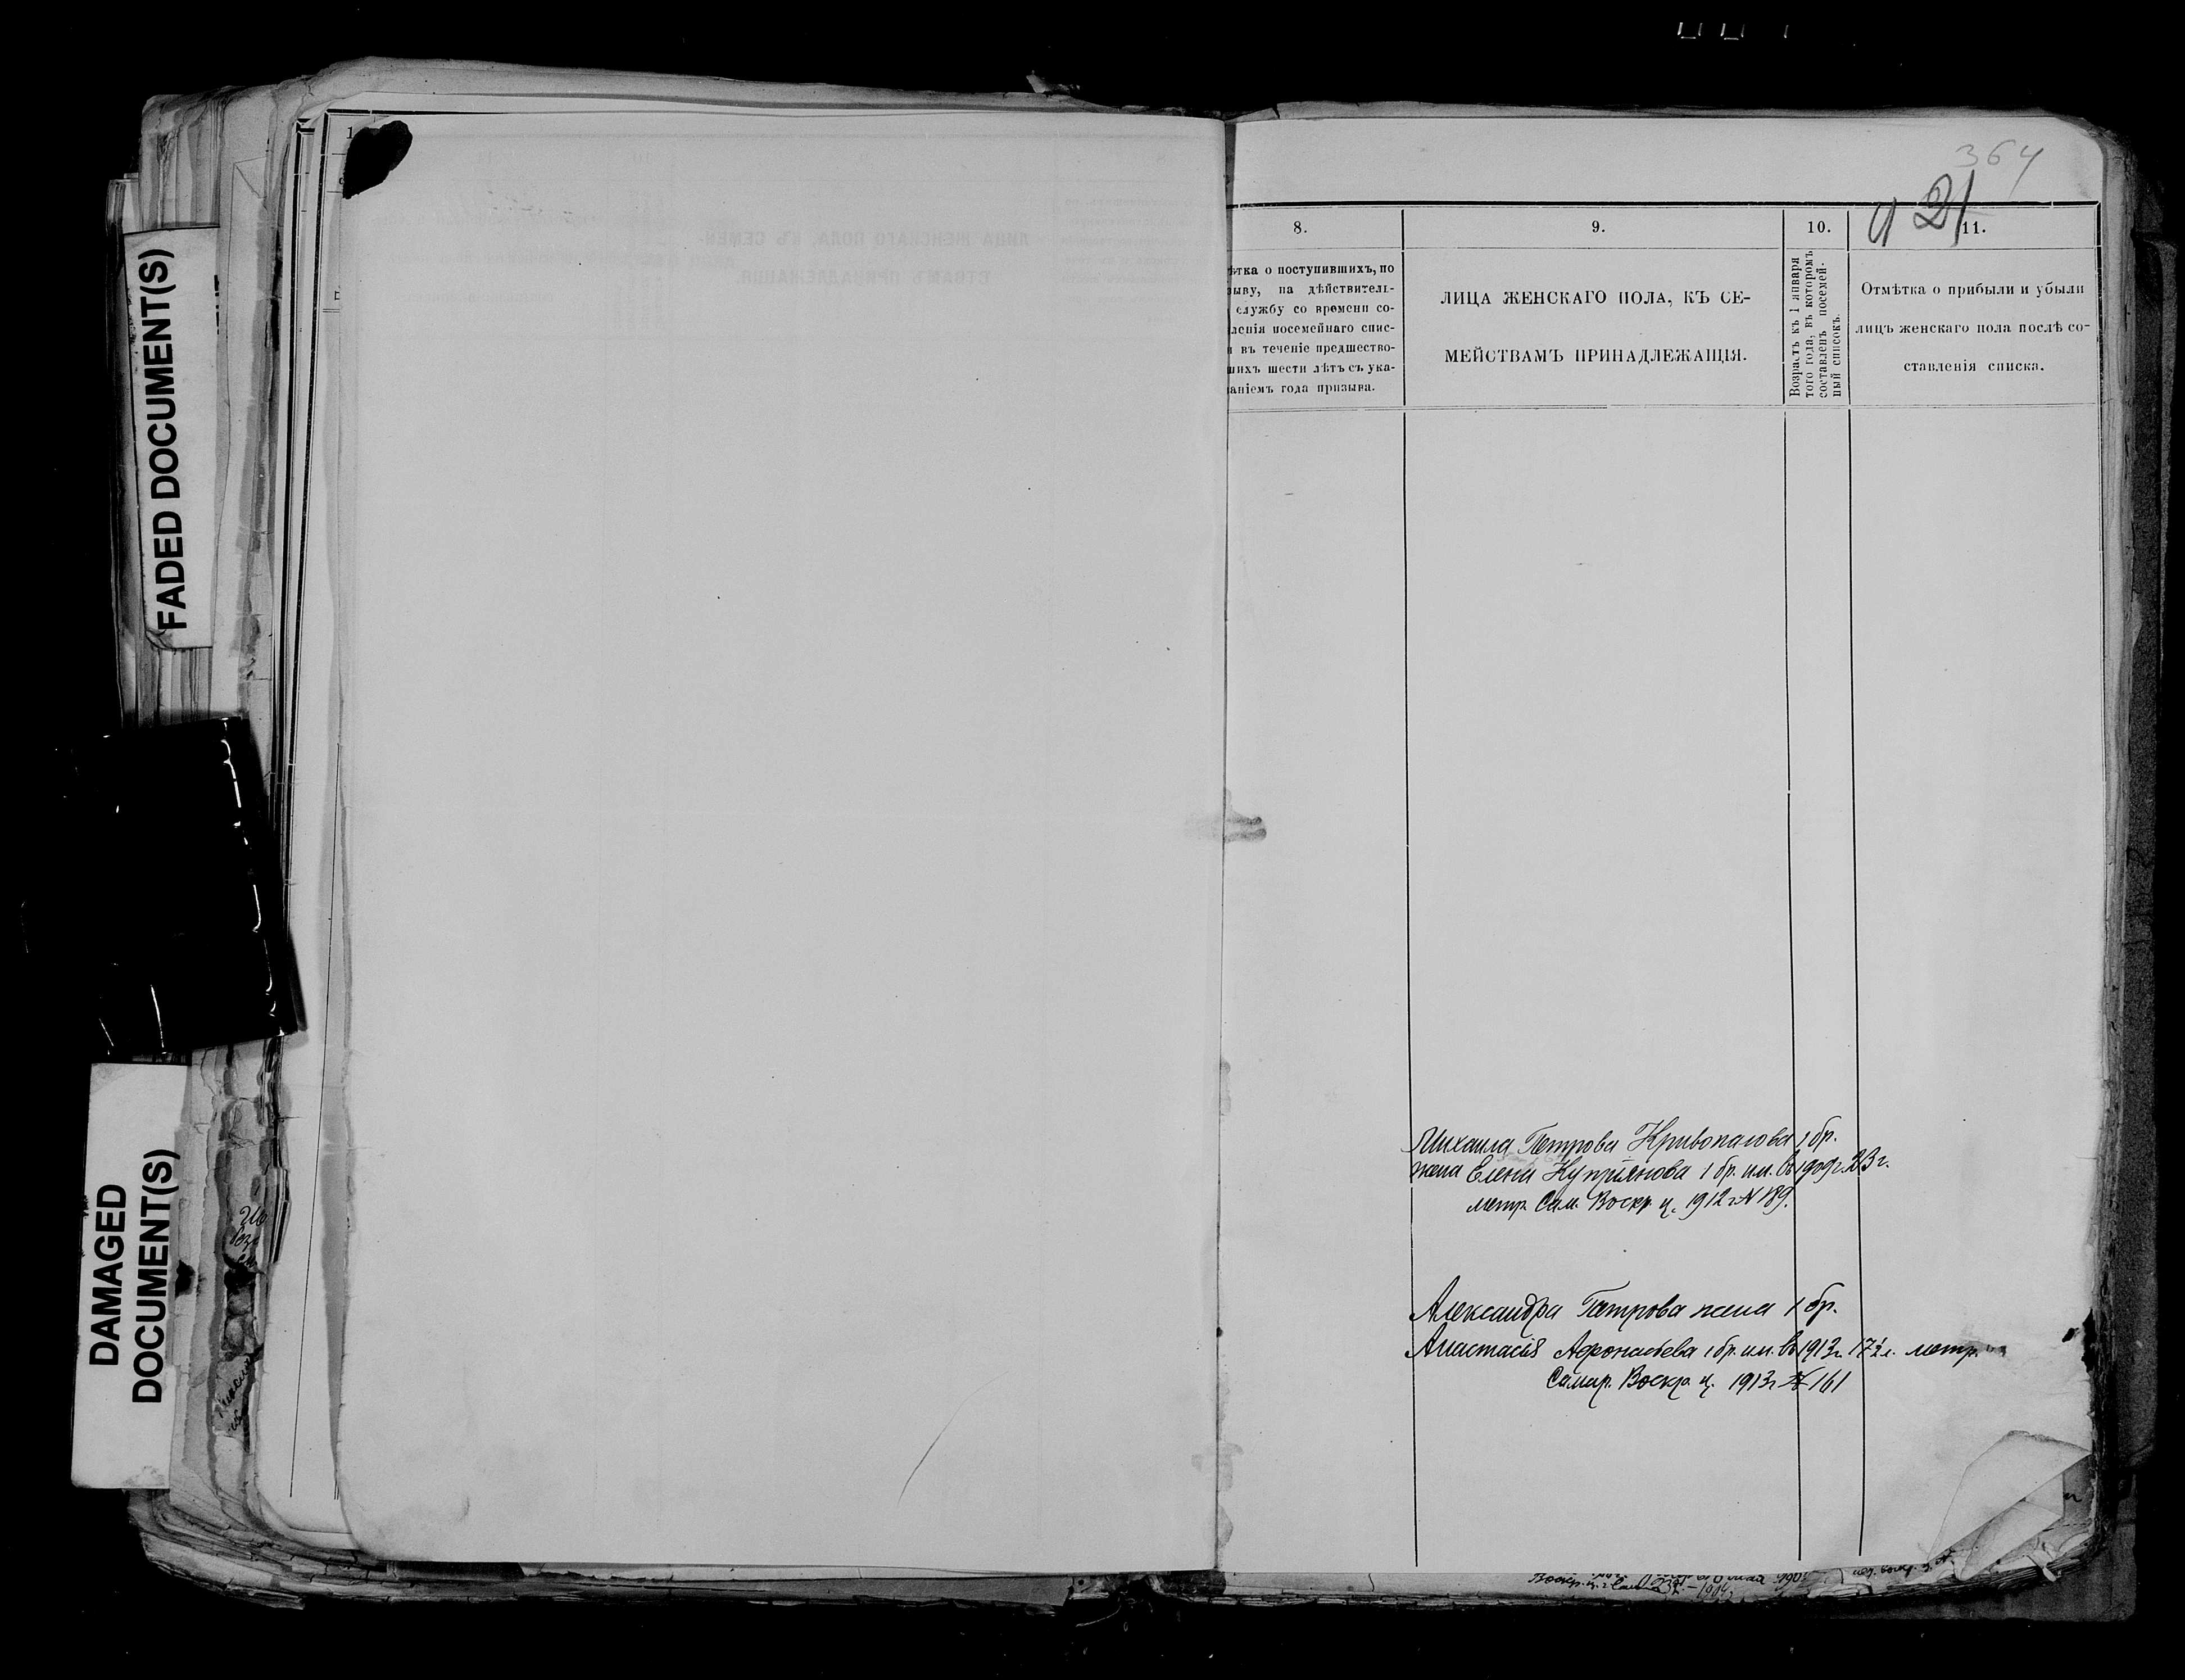 FADED DOCUMENT(S)
DAMAGED
DOCUMENT(S)
364
21
8.
9.
10.
11.
ѣтка о поступившихъ, по
зыву, на дѣйствитель-
службу со времени со-
ленія посемейнаго спис-
и въ теченіе предшество-
шихъ шести лѣтъ съ ука-
аніемъ года призыва.
ЛИЦА ЖЕНСКАГО ПОЛА, КЪ СЕ-
МЕЙСТВАМЪ ПРИНАДЛЕЖАЩІЯ.
Возрастъ къ 1 января
того года, въ которомъ
составленъ посемей-
ный списокъ.
Отмѣтка о прибыли и убыли
лицъ женскаго пола послѣ со-
ставленія списка.
Михаила Петрова Кривопалова 1 бр.
жена Елена Купріянова 1 бр. им. въ 1909 г. 23 г.
метр. Сам. Воскр. ц. 1912 г. № 189.
Александра Петрова жена 1 бр.
Анастасія Афонасьева 1 бр. им. въ 1913 г. 17½ л. метр.
Самар. Воскр. ц. 1913 г. № 161